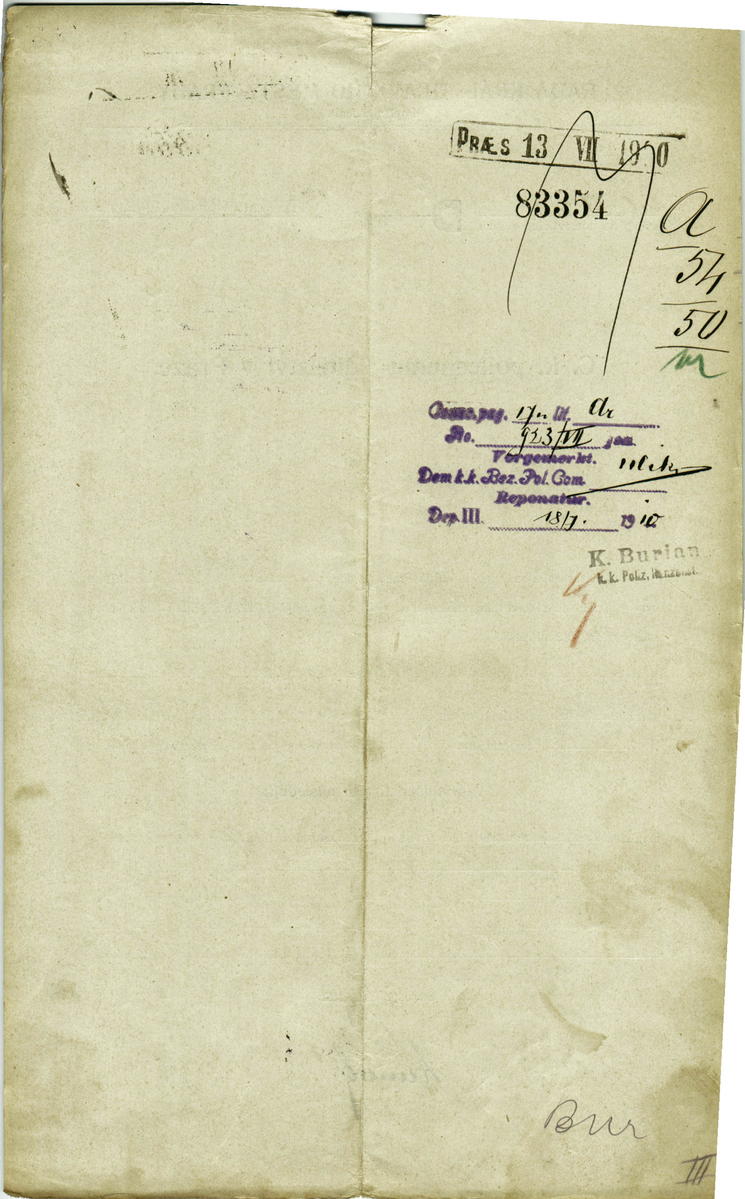 PRÆS 13 VII 1910
83354
A
54
50
Consc. pag. 17 lit. Ar
No. 923/VII
Vorgemerkt.
Dem k.k. Bez. Pol. Com.
Reponatur.
Dep. III. 18/7. 1910
K. Burian
k.k. Poliz.
Bur
III